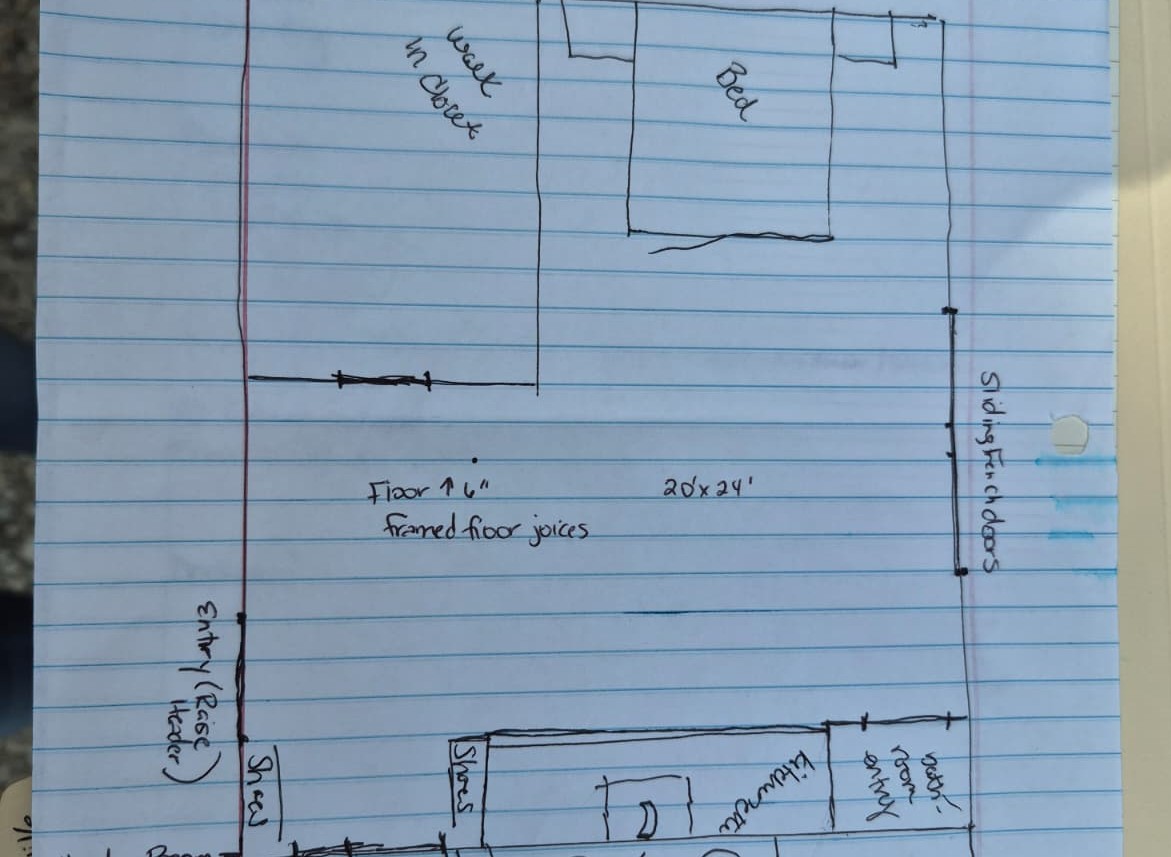 walk
in closet
Bed
Sliding French doors
Floor ↑ 6"
framed floor joices
20'x24'
Entry (Raise
Header)
Shoes
kitchenette
bath-
room
entry